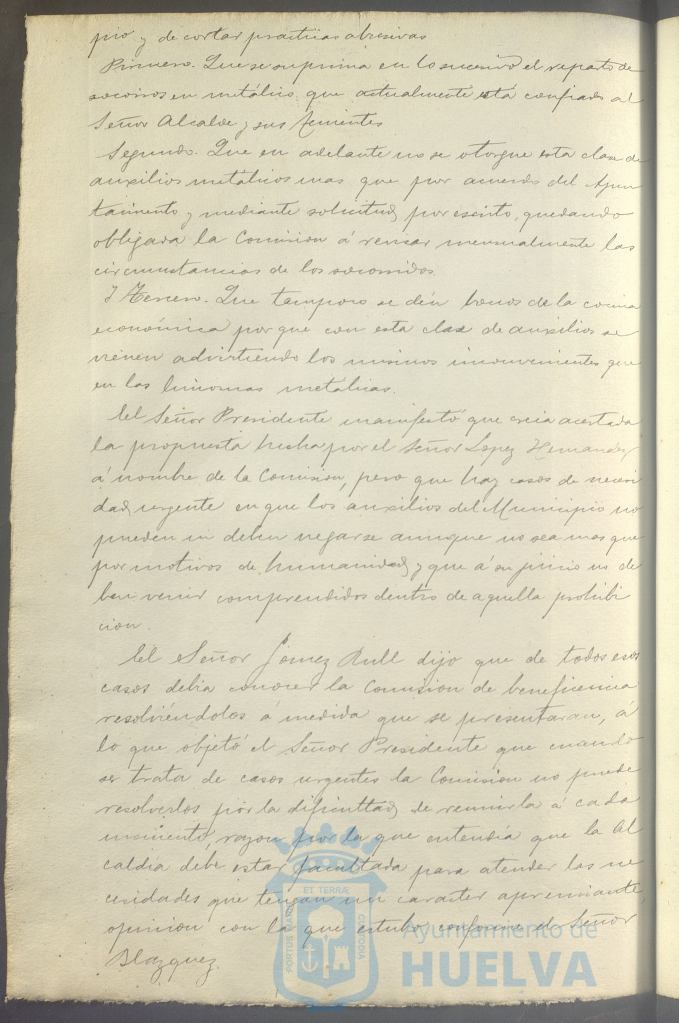 pio y de cortar practicas abusivas
Primero. Que se suprima en lo sucesivo el reparto de
socorros en metálico que actualmente está confiado al
Señor Alcalde y sus Tenientes
Segundo. Que en adelante no se otorgue esta clase de
auxilios metálicos mas que por acuerdo del Ayun
tamiento y mediante solicitud por escrito, quedando
obligada la Comision á revisar mensualmente las
circunstancias de los socorridos.
Y Tercero. Que tampoco se den bonos de la cocina
económica porque con esta clase de auxilios se
vienen advirtiendo los mismos inconvenientes que
en las limosnas metálicas.
El Señor Presidente manifestó que creia acertada
la propuesta hecha por el Señor Lopez Hernandez
á nombre de la Comision, pero que hay casos de necesi
dad urgente en que los auxilios del Municipio no
pueden ni deben negarse aunque no sea mas que
por motivos de humanidad y que á su juicio no de
ben venir comprendidos dentro de aquella prohibi
cion.
El Señor Gomez Rull dijo que de todos esos
casos debia conocer la Comision de beneficencia
resolviéndolos á medida que se presentaran, á
lo que objetó el Señor Presidente que cuando
se trata de casos urgentes la Comision no puede
resolverlos por la dificultad de reunirla á cada
momento, razon por la que entendia que la Al
caldia debe estar facultada para atender las ne
cesidades que tengan un caracter apremiante,
opinion con la que estubo conforme el Señor
Blazquez.
PORTUS MARIS ET TERRÆ CUSTODIA
Ayuntamiento de
HUELVA